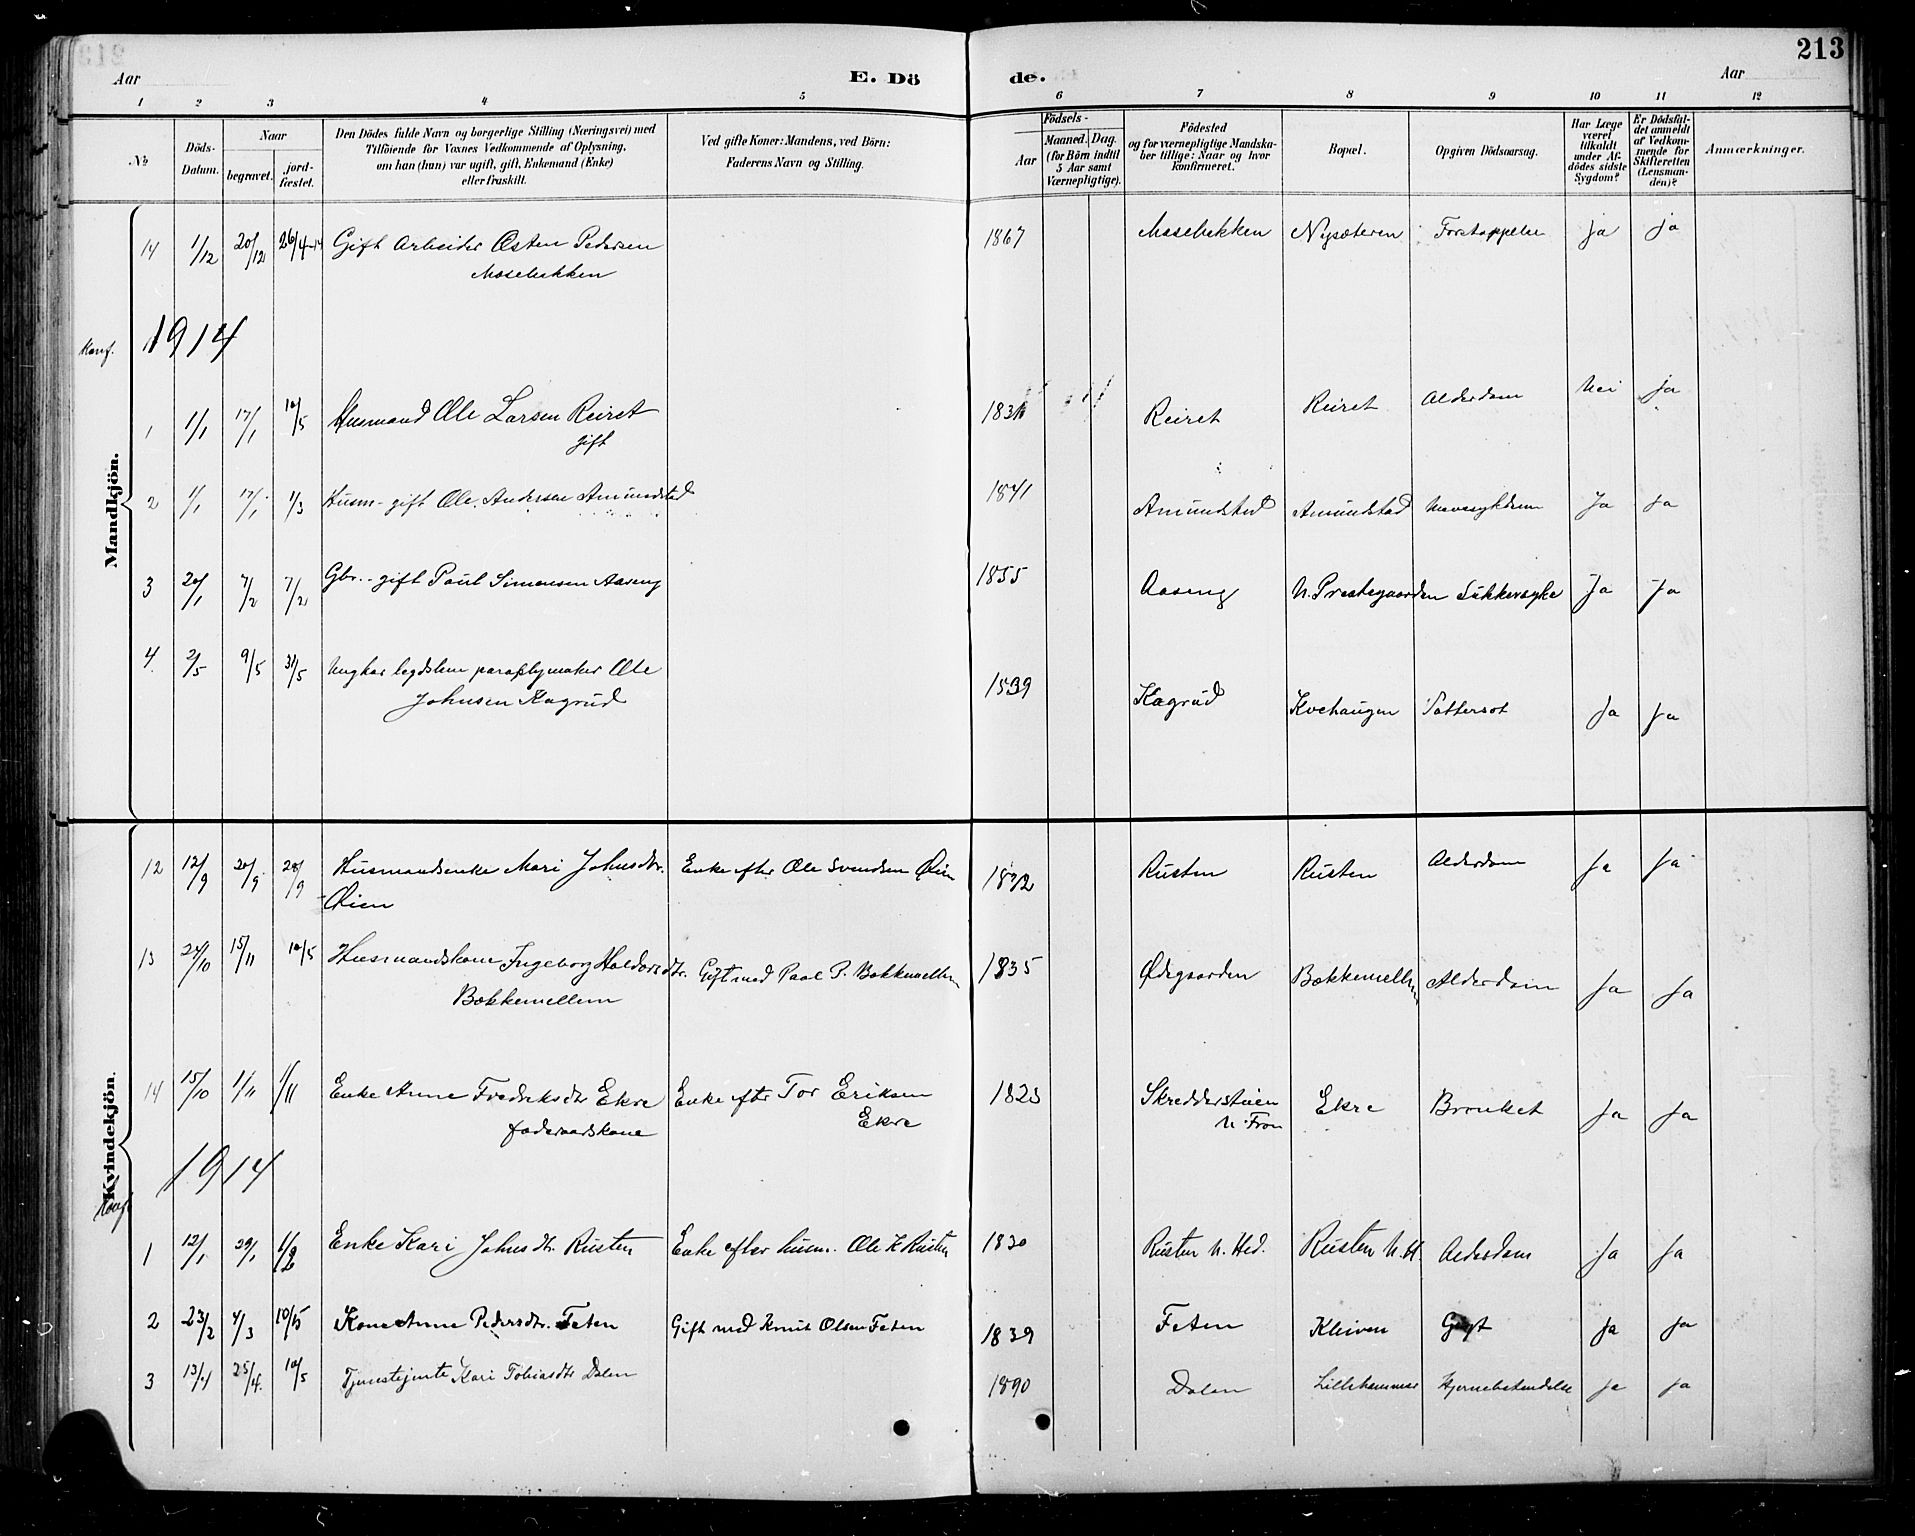 213
Aar
E. Dö de.
Aar
1 2 3 4 5 6 7 8 9 10 11 12
No
Döds-Datum.
Naar
begravet.
jord-fæstet.
Den Dödes fulde Navn og borgerlige Stilling (Næringsvei) med
Tilföiende for Voxnes Vedkommende af Oplysning,
om han (hun) var ugift, gift, Enkemand (Enke)
eller fraskilt.
Ved gifte Koner: Mandens, ved Börn:
Faderens Navn og Stilling.
Födsels-
Aar
Maaned. Dag.
(for Börn indtil
5 Aar samt
Værnepligtige).
Födested
og for værnepligtige Mandska-
ber tillige: Naar og hvor
konfirmeret.
Bopæl.
Opgiven Dödsaarsag.
Har Læge
været
tilkaldt
under Af-
dödes sidste
Sygdom?
Er Dödsfal-
det anmeldt
af Vedkom-
mende for
Skifteretten
(Lensman-
den)?
Anmærkninger.
Mandkjön.
14 1/12 20/12 26/4-14 Gift Arbeider Østen Pedersen 1867 Mosebekken Nysæteren Forstoppelse ja ja
Mosebekken
Konf. 1914
1 1/1 17/1 10/5 Husmand Ole Larsen Reiret 1831 Reiret Reiret Alderdom Nei ja
gift
2 1/1 17/1 1/3 Husm- gift Ole Andersen Amundstad 1841 Amundstad Amundstad Mavesykdom Ja ja
3 20/1 7/2 7/2 Gbr.- gift Paul Simensen Aaseng 1855 Aaseng N. Prestegaarden Sukkersyke Ja Ja
4 2/5 9/5 31/5 Ungkar legdslem paraplymaker Ole
Johnsen Kagrud 1839 Kagrud Kvehaugen Ja Ja
Kvindekjön.
12 12/9 20/9 20/9 Husmandsenke Mari Johnsdtr. Enke efter Ole Svendsen Øien Rusten Rusten Alderdom Ja Ja
Øien
13 24/10 15/11 10/5 Husmandskone Ingeborg Haldorsdtr. Gift med Paal P. Bækkemellem 1835 Ødegaarden Bækkemellem Alderdom Ja Ja
Bækkemellem
14 15/10 1/11 1/11 Enke Anne Fredriksdtr Ekre Enke efter Tor Eriksen 1823 Skredderstuen Ekre Bronket Ja Ja
føderaadskone Ekre N. Fron
Konf. 1914
1 12/1 29/1 1/2 Enke Kari Johnsdtr. Rusten Enke efter husm. Ole K Rusten 1830 Rusten N. Hed. Rusten N. H. Alderdom Ja Ja
2 23/2 4/3 10/5 Kone Anne Pedersdtr. Feten Gift med Knut Olsen Feten 1839 Feten Kleiven Gigt Ja Ja
3 13/4 25/4. 10/5 Tjenestejente Kari Tobiasdtr Dalen 1890 Dalen Lillehammer Hjernebetændelse ja ja